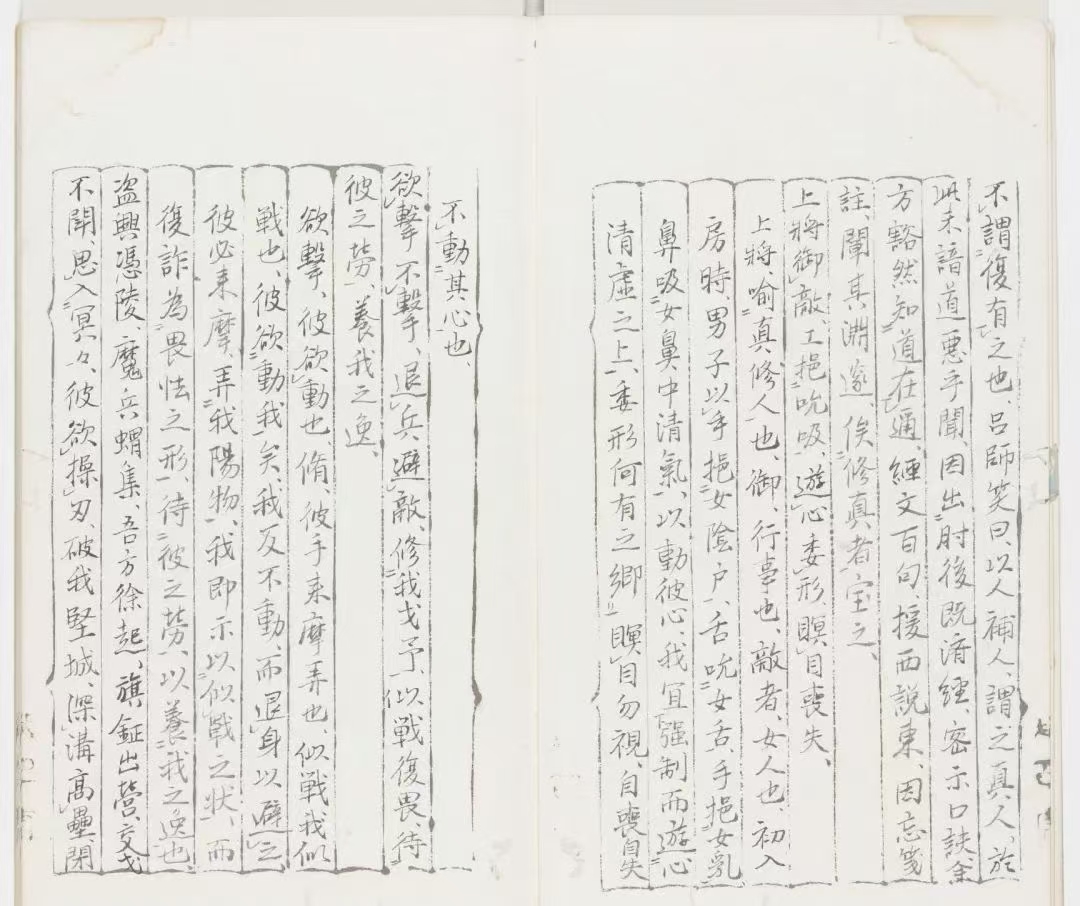 不謂復有之也、呂師笑曰、以人補人、謂之真人、於
此未諳道惡乎聞、因出肘後既済經、密示口訣、余
方豁然知道在邇、經文百句、援西說東、因忘箋
註、闡其淵邃、俟修真者宝之、
上將御敵、工挹吮吸、遊心委形、瞑目喪失、
上將、喻真修人也、御、行事也、敵者、女人也、初入
房時、男子以手挹女陰户、舌吮女舌、手挹女乳
鼻吸女鼻中清氣、以動彼心、我宜強制而遊心
清虛之上、委形何有之鄉、瞑目勿視、自喪自失
不動其心也、
欲擊不擊、退兵避敵、修我戈予、似戦復畏、待
彼之勞、養我之逸、
欲擊、彼欲動也、脩、彼手来摩弄也、似戦我似
戦也、彼欲動我矣、我反不動、而退身以避之
彼必来摩弄我陽物、我即示以似戦之狀、而
復詐為畏怯之形、待彼之勞、以養我之逸也、
盗興憑陵、魔兵蝟集、吾方徐起、旗鉦出營、交戈
不鬪、思入冥々、彼欲操刃、破我堅城、深溝高壘、閉